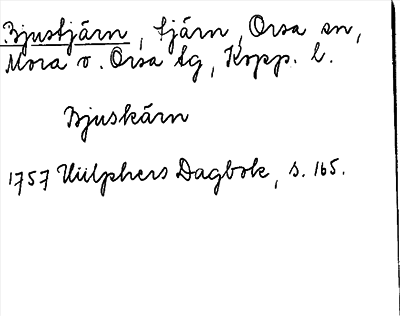 Bjustjärn, tjärn, Orsa sn,
Mora o. Orsa tg, Kopp. l.
Bjuskärn
1757 Hülphers Dagbok, s. 165.